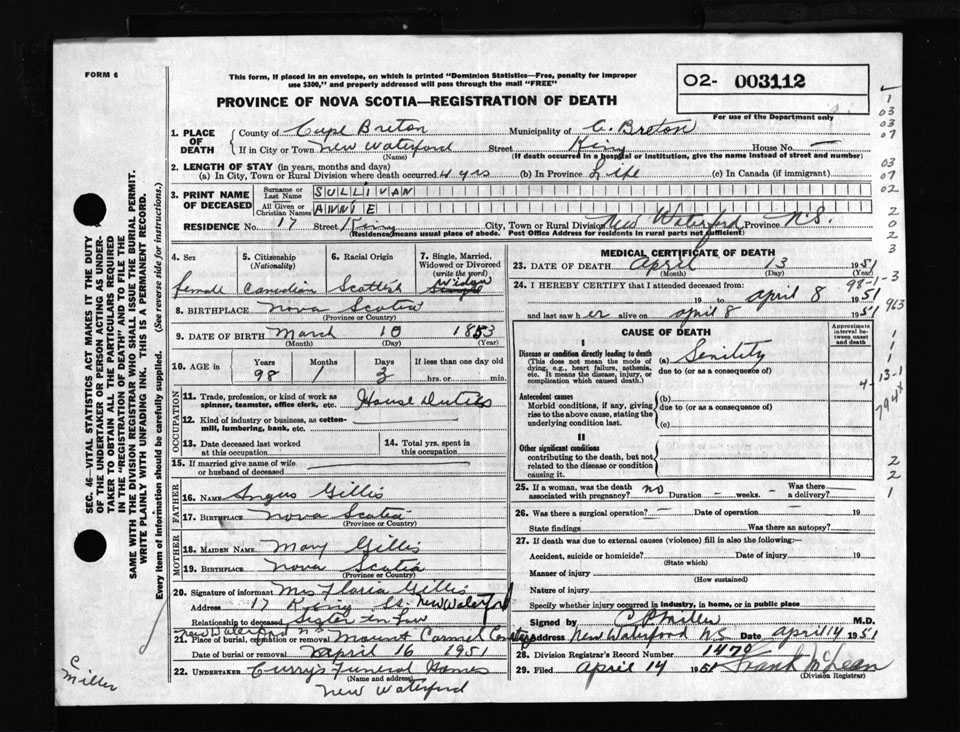 FORM 6
This form, if placed in an envelope, on which is printed "Dominion Statistics—Free, penalty for improper
use $300," and properly addressed will pass through the mail "FREE"
02- 003112
For use of the Department only
PROVINCE OF NOVA SCOTIA—REGISTRATION OF DEATH
1. PLACE OF DEATH
County of Cape Breton Municipality of C. Breton
If in City or Town New Waterford Street King House No. —
(Name) (If death occurred in a hospital or institution, give the name instead of street and number)
2. LENGTH OF STAY (in years, months and days)
(a) In City, Town or Rural Division where death occurred 4 yrs (b) In Province Life (c) In Canada (if immigrant)
3. PRINT NAME OF DECEASED
Surname or Last Name SULLIVAN
All Given or Christian Names ANNIE
RESIDENCE No. 17 Street King City, Town or Rural Division New Waterford Province N.S.
(Residence means usual place of abode. Post Office Address for residents in rural parts not sufficient)
4. Sex female
5. Citizenship (Nationality) Canadian
6. Racial Origin Scottish
7. Single, Married, Widowed or Divorced (write the word) Widow Single
8. BIRTHPLACE Nova Scotia
(Province or Country)
9. DATE OF BIRTH March 10 1853
(Month) (Day) (Year)
10. AGE in Years 98 Months 1 Days 3 If less than one day old hrs. or min.
OCCUPATION
11. Trade, profession, or kind of work as spinner, teamster, office clerk, etc. House Duties
12. Kind of industry or business, as cotton-mill, lumbering, bank, etc.
13. Date deceased last worked at this occupation
14. Total yrs. spent in this occupation
15. If married give name of wife or husband of deceased
FATHER
16. NAME Angus Gillis
17. BIRTHPLACE Nova Scotia
(Province or Country)
MOTHER
18. MAIDEN NAME Mary Gillis
19. BIRTHPLACE Nova Scotia
(Province or Country)
20. Signature of informant Mrs Floria Gillis
Address 17 King St. New Waterford
Relationship to deceased Sister in Law
New Waterford N.S.
21. Place of burial, cremation or removal Mount Carmel Cemetery
Date of burial or removal April 16 1951
22. UNDERTAKER Curry's Funeral Homes
(Name and address)
New Waterford
MEDICAL CERTIFICATE OF DEATH
23. DATE OF DEATH April 13 1951
(Month) (Day) (Year)
24. I HEREBY CERTIFY that I attended deceased from:
19 to April 8 1951
and last saw h er alive on April 8 1951
CAUSE OF DEATH
Approximate interval between onset and death
I
Disease or condition directly leading to death (a) Senility
(This does not mean the mode of dying, e.g., heart failure, asthenia, etc. It means the disease, injury, or complication which caused death.)
due to (or as a consequence of)
Antecedent causes
Morbid conditions, if any, giving rise to the above cause, stating the underlying condition last.
(b)
due to (or as a consequence of)
(c)
II
Other significant conditions
contributing to the death, but not related to the disease or condition causing it.
25. If a woman, was the death associated with pregnancy? no Duration — weeks. — Was there a delivery? —
26. Was there a surgical operation? — Date of operation — 19
State findings Was there an autopsy?
27. If death was due to external causes (violence) fill in also the following:—
Accident, suicide or homicide? Date of injury 19
Manner of injury
(How sustained)
Nature of injury
Specify whether injury occurred in industry, in home, or in public place
Signed by C P Miller M.D.
Address New Waterford N.S. Date April 14 1951
28. Division Registrar's Record Number 1470
29. Filed April 14 1951 Frank McLean
(Division Registrar)
SEC. 46—VITAL STATISTICS ACT MAKES IT THE DUTY
OF THE UNDERTAKER OR PERSON ACTING AS UNDER-
TAKER TO OBTAIN ALL THE PARTICULARS REQUIRED
IN THE "REGISTRATION OF DEATH" AND TO FILE THE
SAME WITH THE DIVISION REGISTRAR WHO SHALL ISSUE THE BURIAL PERMIT.
WRITE PLAINLY WITH UNFADING INK. THIS IS A PERMANENT RECORD.
Every item of information should be carefully supplied. (See reverse side for instructions.)
C Miller
1
03
03
07
03
07
02
2
0
2
3
98-1-3
963
1
1
1
4-13-1
794x
2
2
1